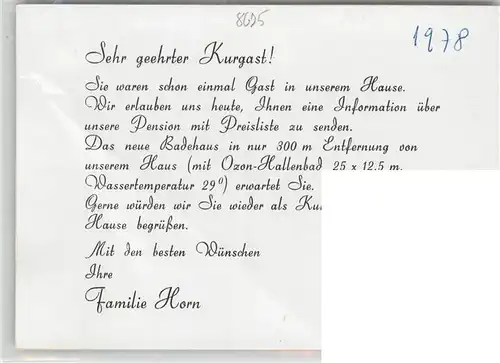 8625
1978
Sehr geehrter Kurgast!
Sie waren schon einmal Gast in unserem Hause.
Wir erlauben uns heute, Ihnen eine Information über
unsere Pension mit Preisliste zu senden.
Das neue Badehaus in nur 300 m Entfernung von
unserem Haus (mit Ozon-Hallenbad 25 x 12,5 m,
Wassertemperatur 29°) erwartet Sie.
Gerne würden wir Sie wieder als
Hause begrüßen.
Mit den besten Wünschen
Ihre
Familie Horn